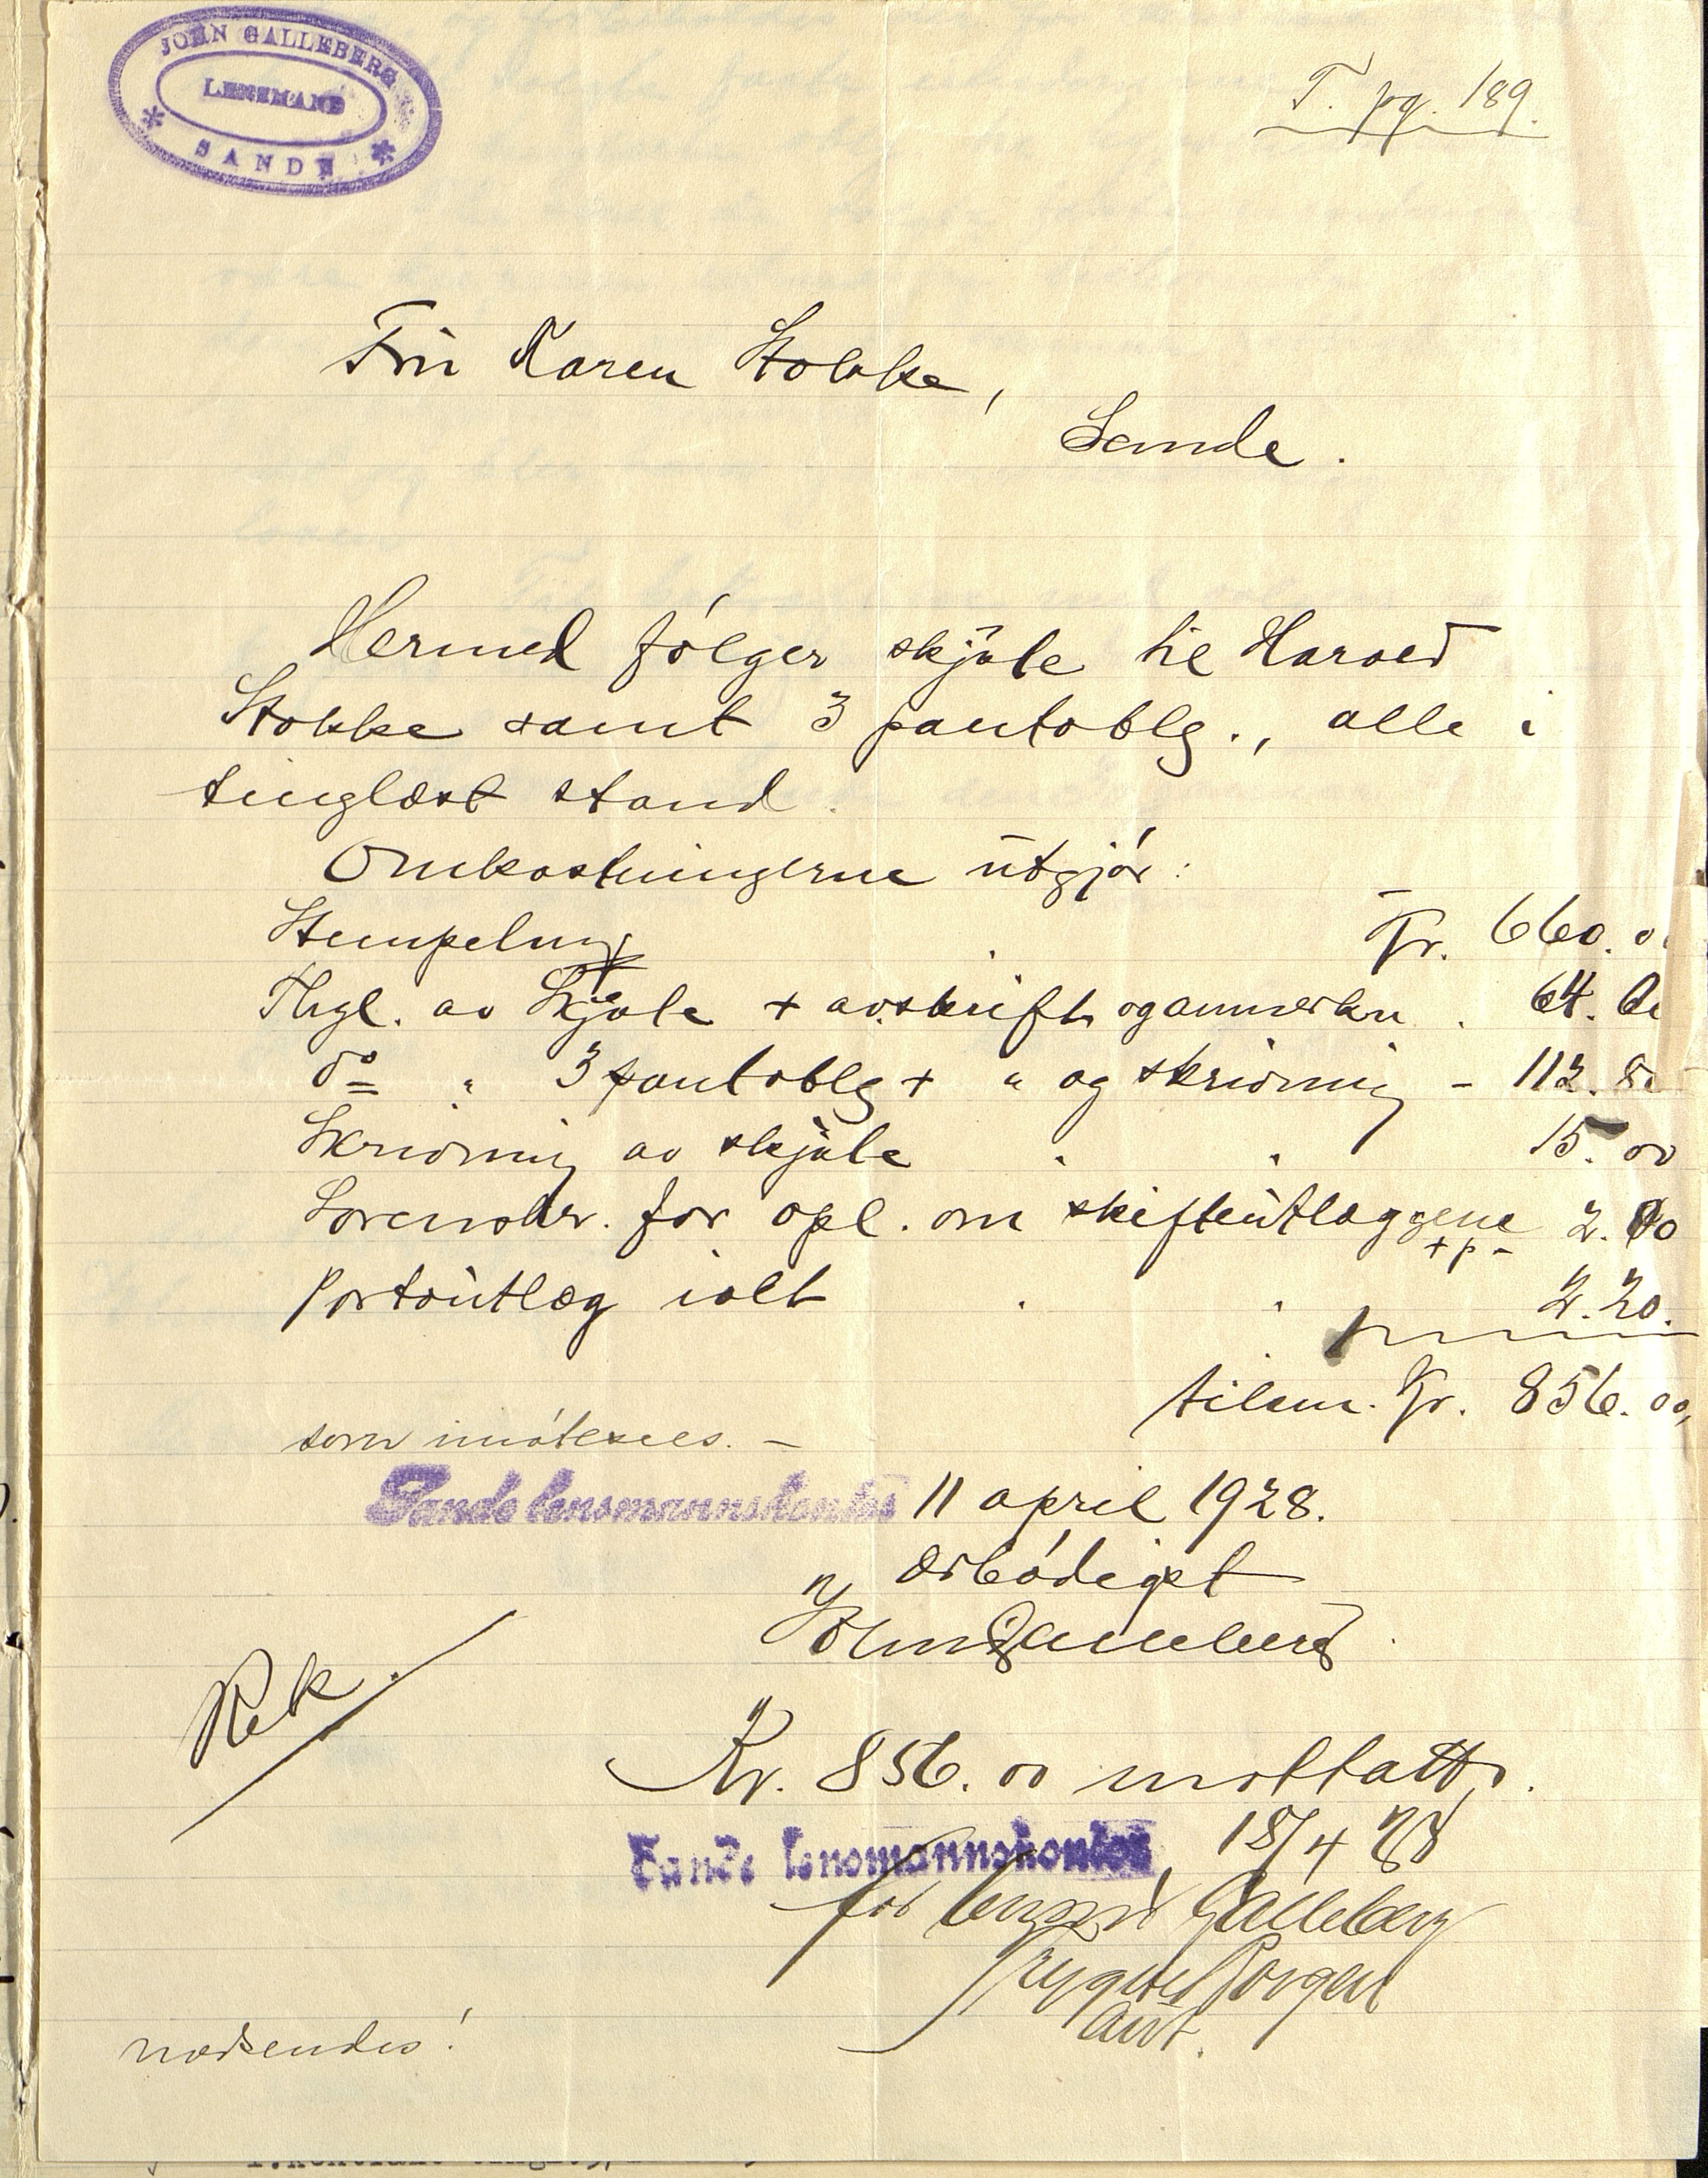 JOHN GALLEBERG
LENSMAND
SANDE
T. pg. 189.
Fru Karen Stokke,
Sande.
Hermed følger skjøte til Harald
Stokke samt 3 pantoblg., alle i
tinglæst stand.
Omkostningerne utgjør:
Stempeling Kr. 660.00
Thgl. av Skjøte + avskrift og anmerkn. 64.
do " 3 pantoblg + " og skrivning - 112.80
Skrivning av skjøte " " 15.00
Sorenskr. for opl. om skifteutlæggene + p - 2.00
Portoutlæg ialt 2.20.
tilsm. Kr. 856.00,
som imøtesees. -
Sande lensmannskontor 11 april 1928.
ærbødigst
John Galleberg
Rek.
Kr. 856.00 mottatt.
Sande lensmannskontor, 18/4 28
for lensm Galleberg
Aut.
nødsendes!